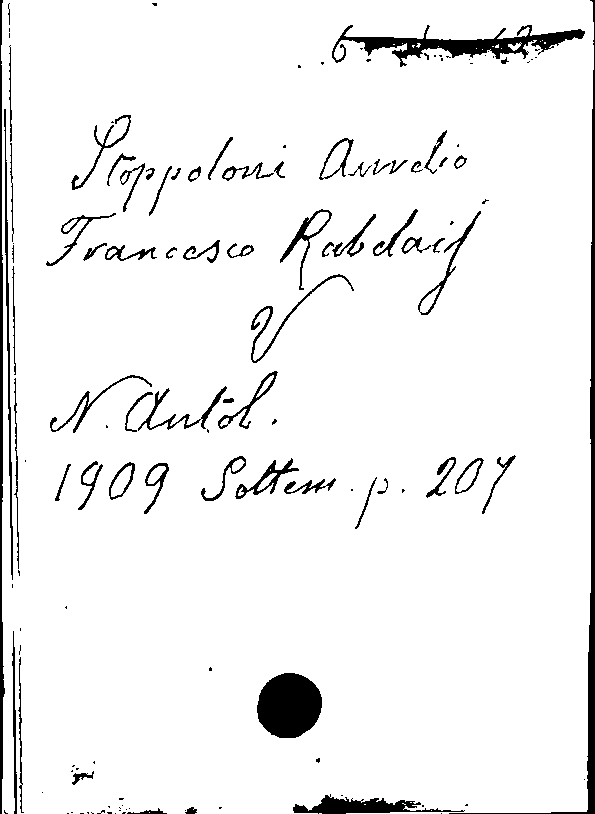 Stoppoloni Aurelio
Francesco Rabelais
N. Antol.
1909 Settem. p. 207